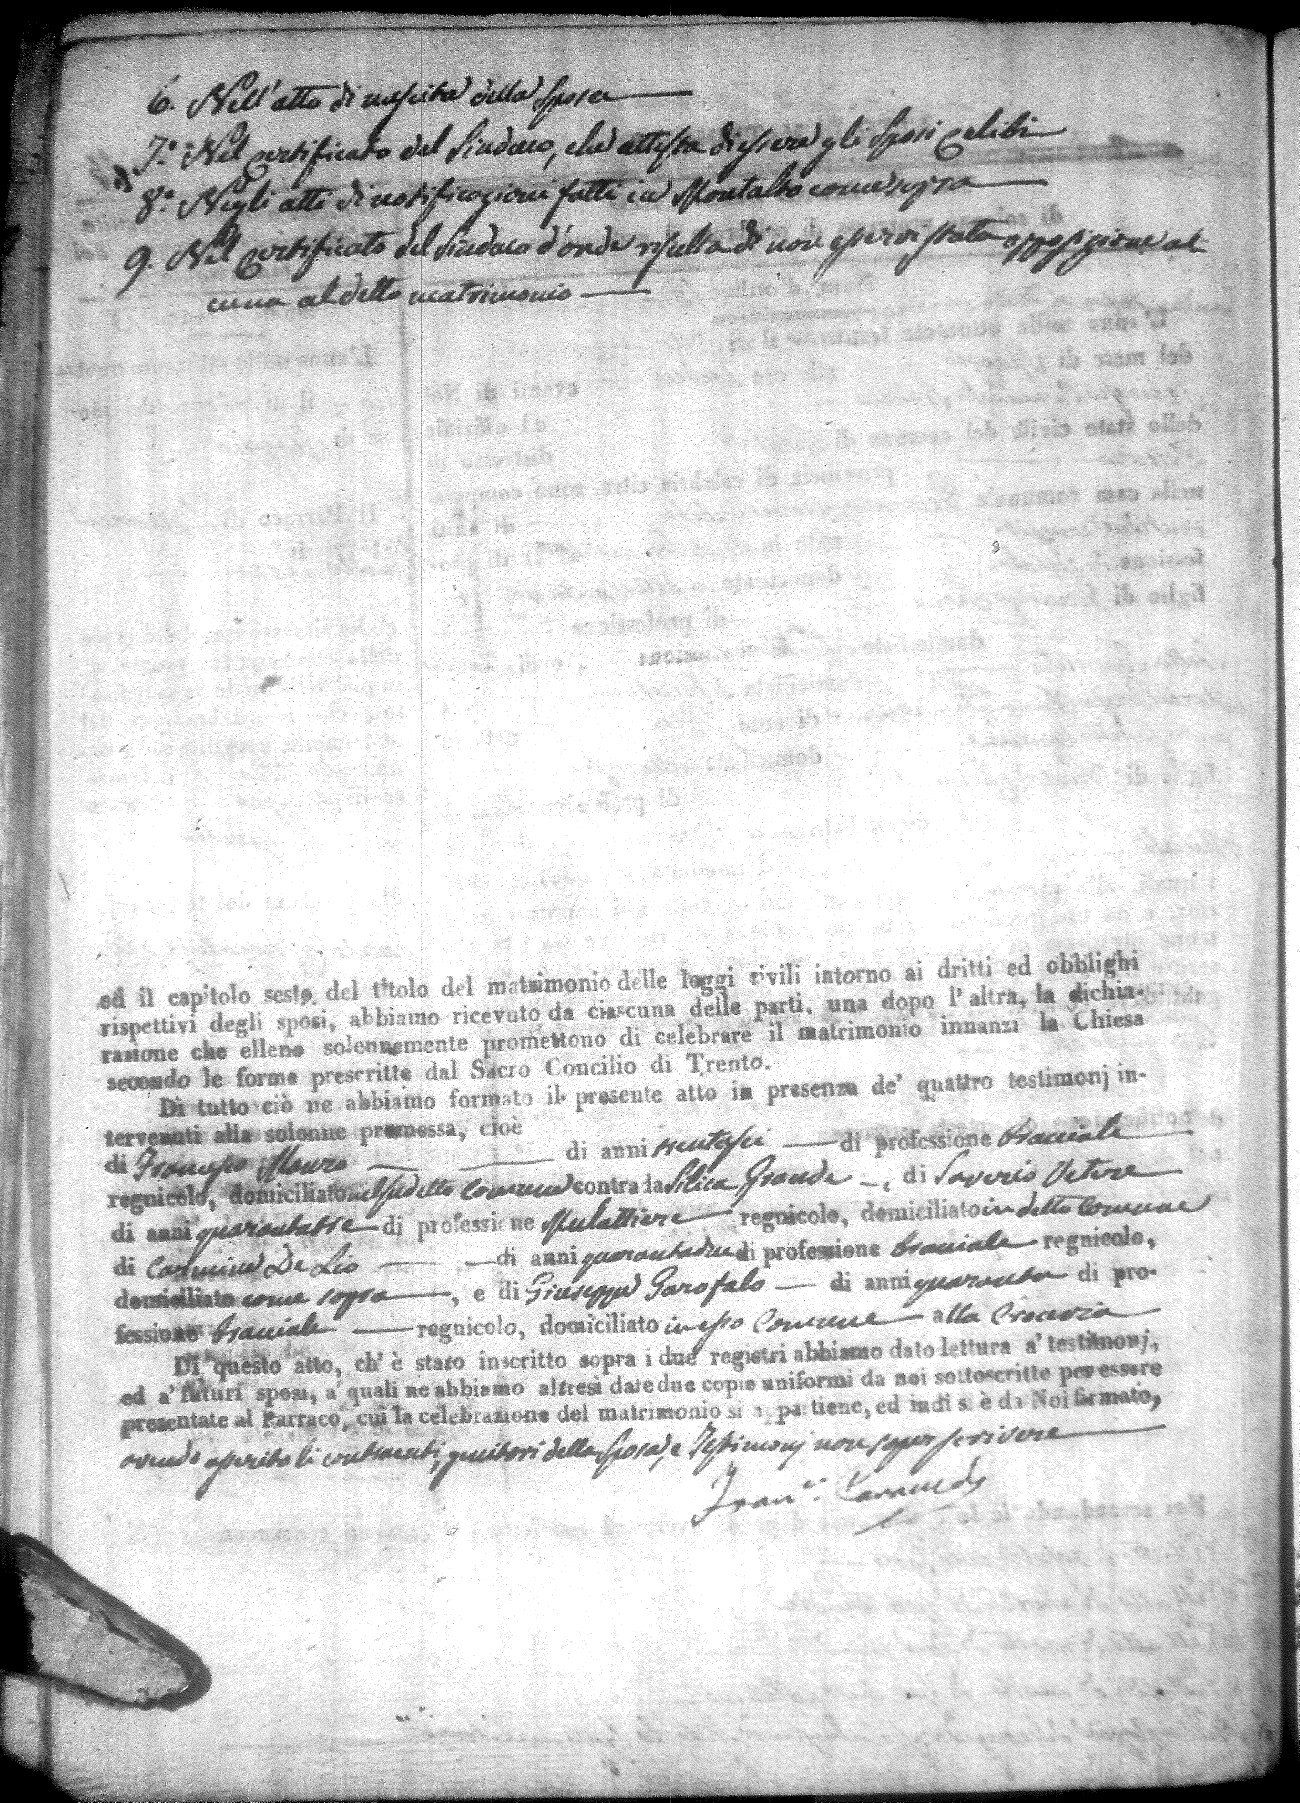 6. Nell'atto di nascita della Sposa
7.° Nel certificato del Sindaco, che attesta di essere gli Sposi celibi
8.° Negli atti di notificazioni fatti in Montalto come sopra
9. Nel certificato del Sindaco d'onde risulta di non esservi stata opposizione al
cuna al detto matrimonio
ed il capitolo sesto del titolo del matrimonio delle leggi civili intorno ai dritti ed obblighi
rispettivi degli sposi, abbiamo ricevuto da ciascuna delle parti, una dopo l'altra, la dichia-
razione che elleno solennemente promettono di celebrare il matrimonio innanzi la Chiesa
secondo le forme prescritte dal Sacro Concilio di Trento.
Di tutto ciò ne abbiamo formato il presente atto in presenza de' quattro testimonj in-
tervenuti alla solenne promessa, cioè
di Francesco Mauro di anni trentasei di professione Bracciale
regnicolo, domiciliato nel sudetto Comune contrada Silica Grande, di Saverio Vetere
di anni quarantatre di professione Mulattiere regnicolo, domiciliato in detto Comune
di Carmine De Lio di anni quarantadue di professione Bracciale regnicolo,
domiciliato come sopra, e di Giuseppe Garofalo di anni quaranta di pro-
fessione Bracciale regnicolo, domiciliato in esso Comune alla Crocevia
Di questo atto, ch' è stato inscritto sopra i due registri abbiamo dato lettura a' testimonj,
ed a' futuri sposi, a' quali ne abbiamo altresì date due copie uniformi da noi sottoscritte per essere
presentate al Parraco, cui la celebrazione del matrimonio si appartiene, ed indi si è da Noi firmato,
avendo asserito li contraenti, genitori della Sposa, e Testimonj non saper scrivere
Fran.co